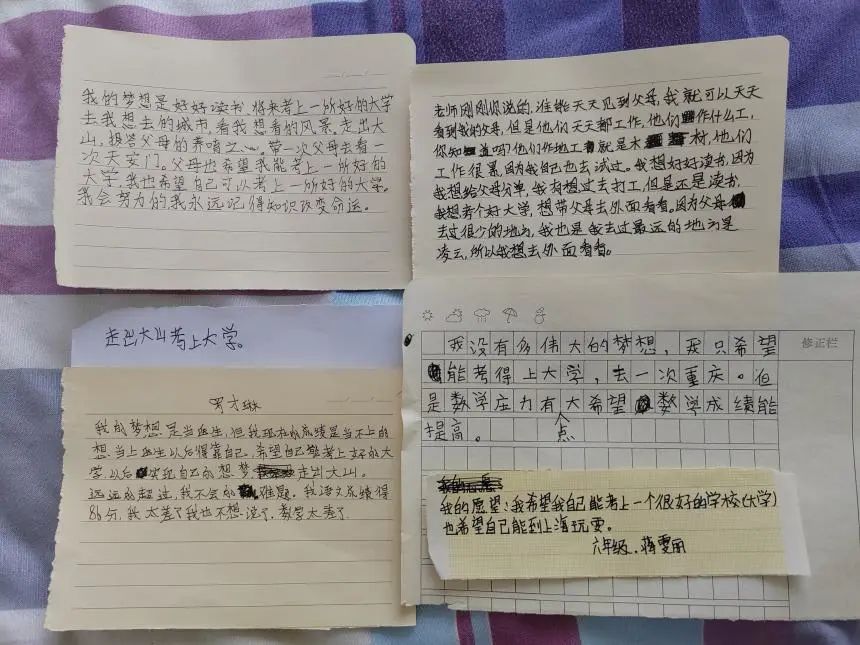 我的梦想是好好读书 将来考上一所好的大学
去我想去的城市,看我想看的风景,走出大
山,报答父母的养育之心。带一次父母去看一
次天安门。父母也希望我能考上一所好的
大学,我也希望自己可以考上一所好的大学。
我会努力的,我永远记得知识改变命运。
老师刚刚你说的,谁能天天见到父母,我就可以天天
看到我的父母,但是他们天天都工作,他们作什么工,
你知道吗?他们作地工就是木材,他们
工作很累,因为我自己也去试过。我想好好读书,因为
我想给父母分单,我有想过去打工,但是还是读书,
我想考个好大学,想带父母去外面看看。因为父母
去过很少的地方,我也是我去过最远的地方是
凌云,所以我想去外面看看。
走出大山考上大学。
我的梦想是当医生,但我现在的成绩是当不上的
想当上医生以后得靠自己,希望自己能考上好的大
学,以后实现自己的想梦走出大山。
远远的超过,我不会的难题。我语文成绩得
86分,我太差了我也不想说了,数学太差了
修正栏
我没有多伟大的梦想,我只希望
能考得上大学,去一次重庆。但
是数学压力有点大希望数学成绩能
提高。
我的愿望:我希望我自己能考上一个很好的学校(大学)
也希望自己能到上海玩耍。
六年级.蒋雯丽